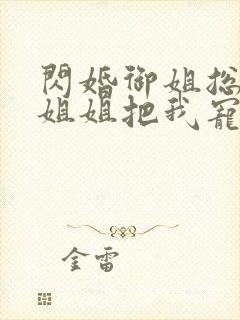 閃婚御姐総
姐姐把我寵
金雷